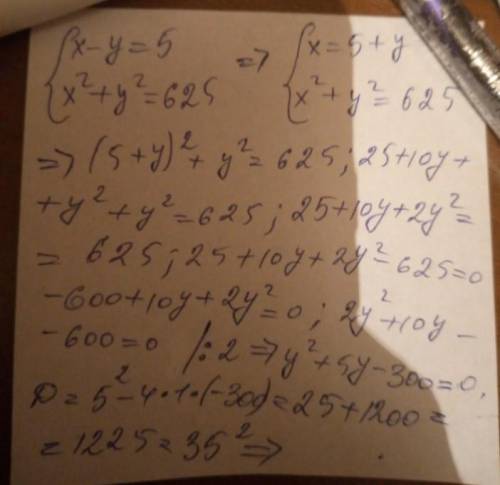 {x-y=5 => {x=5+y
{x²+y²=625 {x²+y²=625
=> (5+y)²+y²=625; 25+10y+
+y²+y²=625; 25+10y+2y²=
= 625; 25+10y+2y²-625=0
-600+10y+2y²=0; 2y²+10y-
-600=0 |:2 => y²+5y-300=0.
D=5²-4·1·(-300)=25+1200=
=1225=35² =>